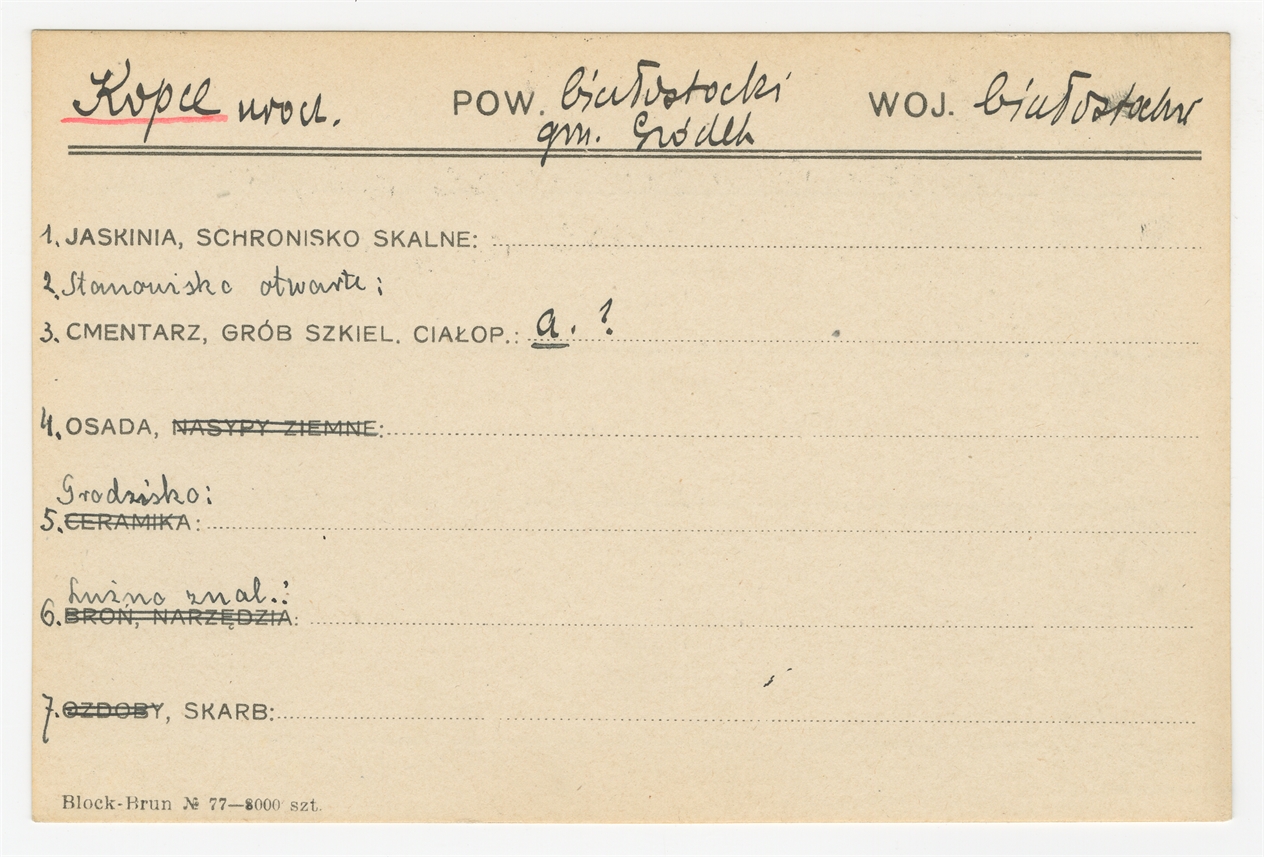 Kopce uroch. POW. białostocki WOJ. białostockie
gm. Gródek
1. JASKINIA, SCHRONISKO SKALNE:
2. Stanowisko otwarte:
3. CMENTARZ, GRÓB SZKIEL. CIAŁOP.: a. ?
4. OSADA, NASYPY ZIEMNE:
Grodzisko:
5. CERAMIKA:
Luźno znal.:
6. BROŃ, NARZĘDZIA:
7. OZDOBY, SKARB:
Block-Brun № 77—8000 szt.